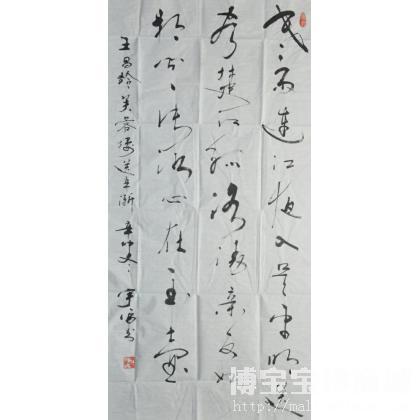 寒雨連江夜入吴平明送
客楚山孤洛陽親友如
相问一片冰心在玉壶
王昌龄芙蓉楼送辛渐 辛卯
博宝